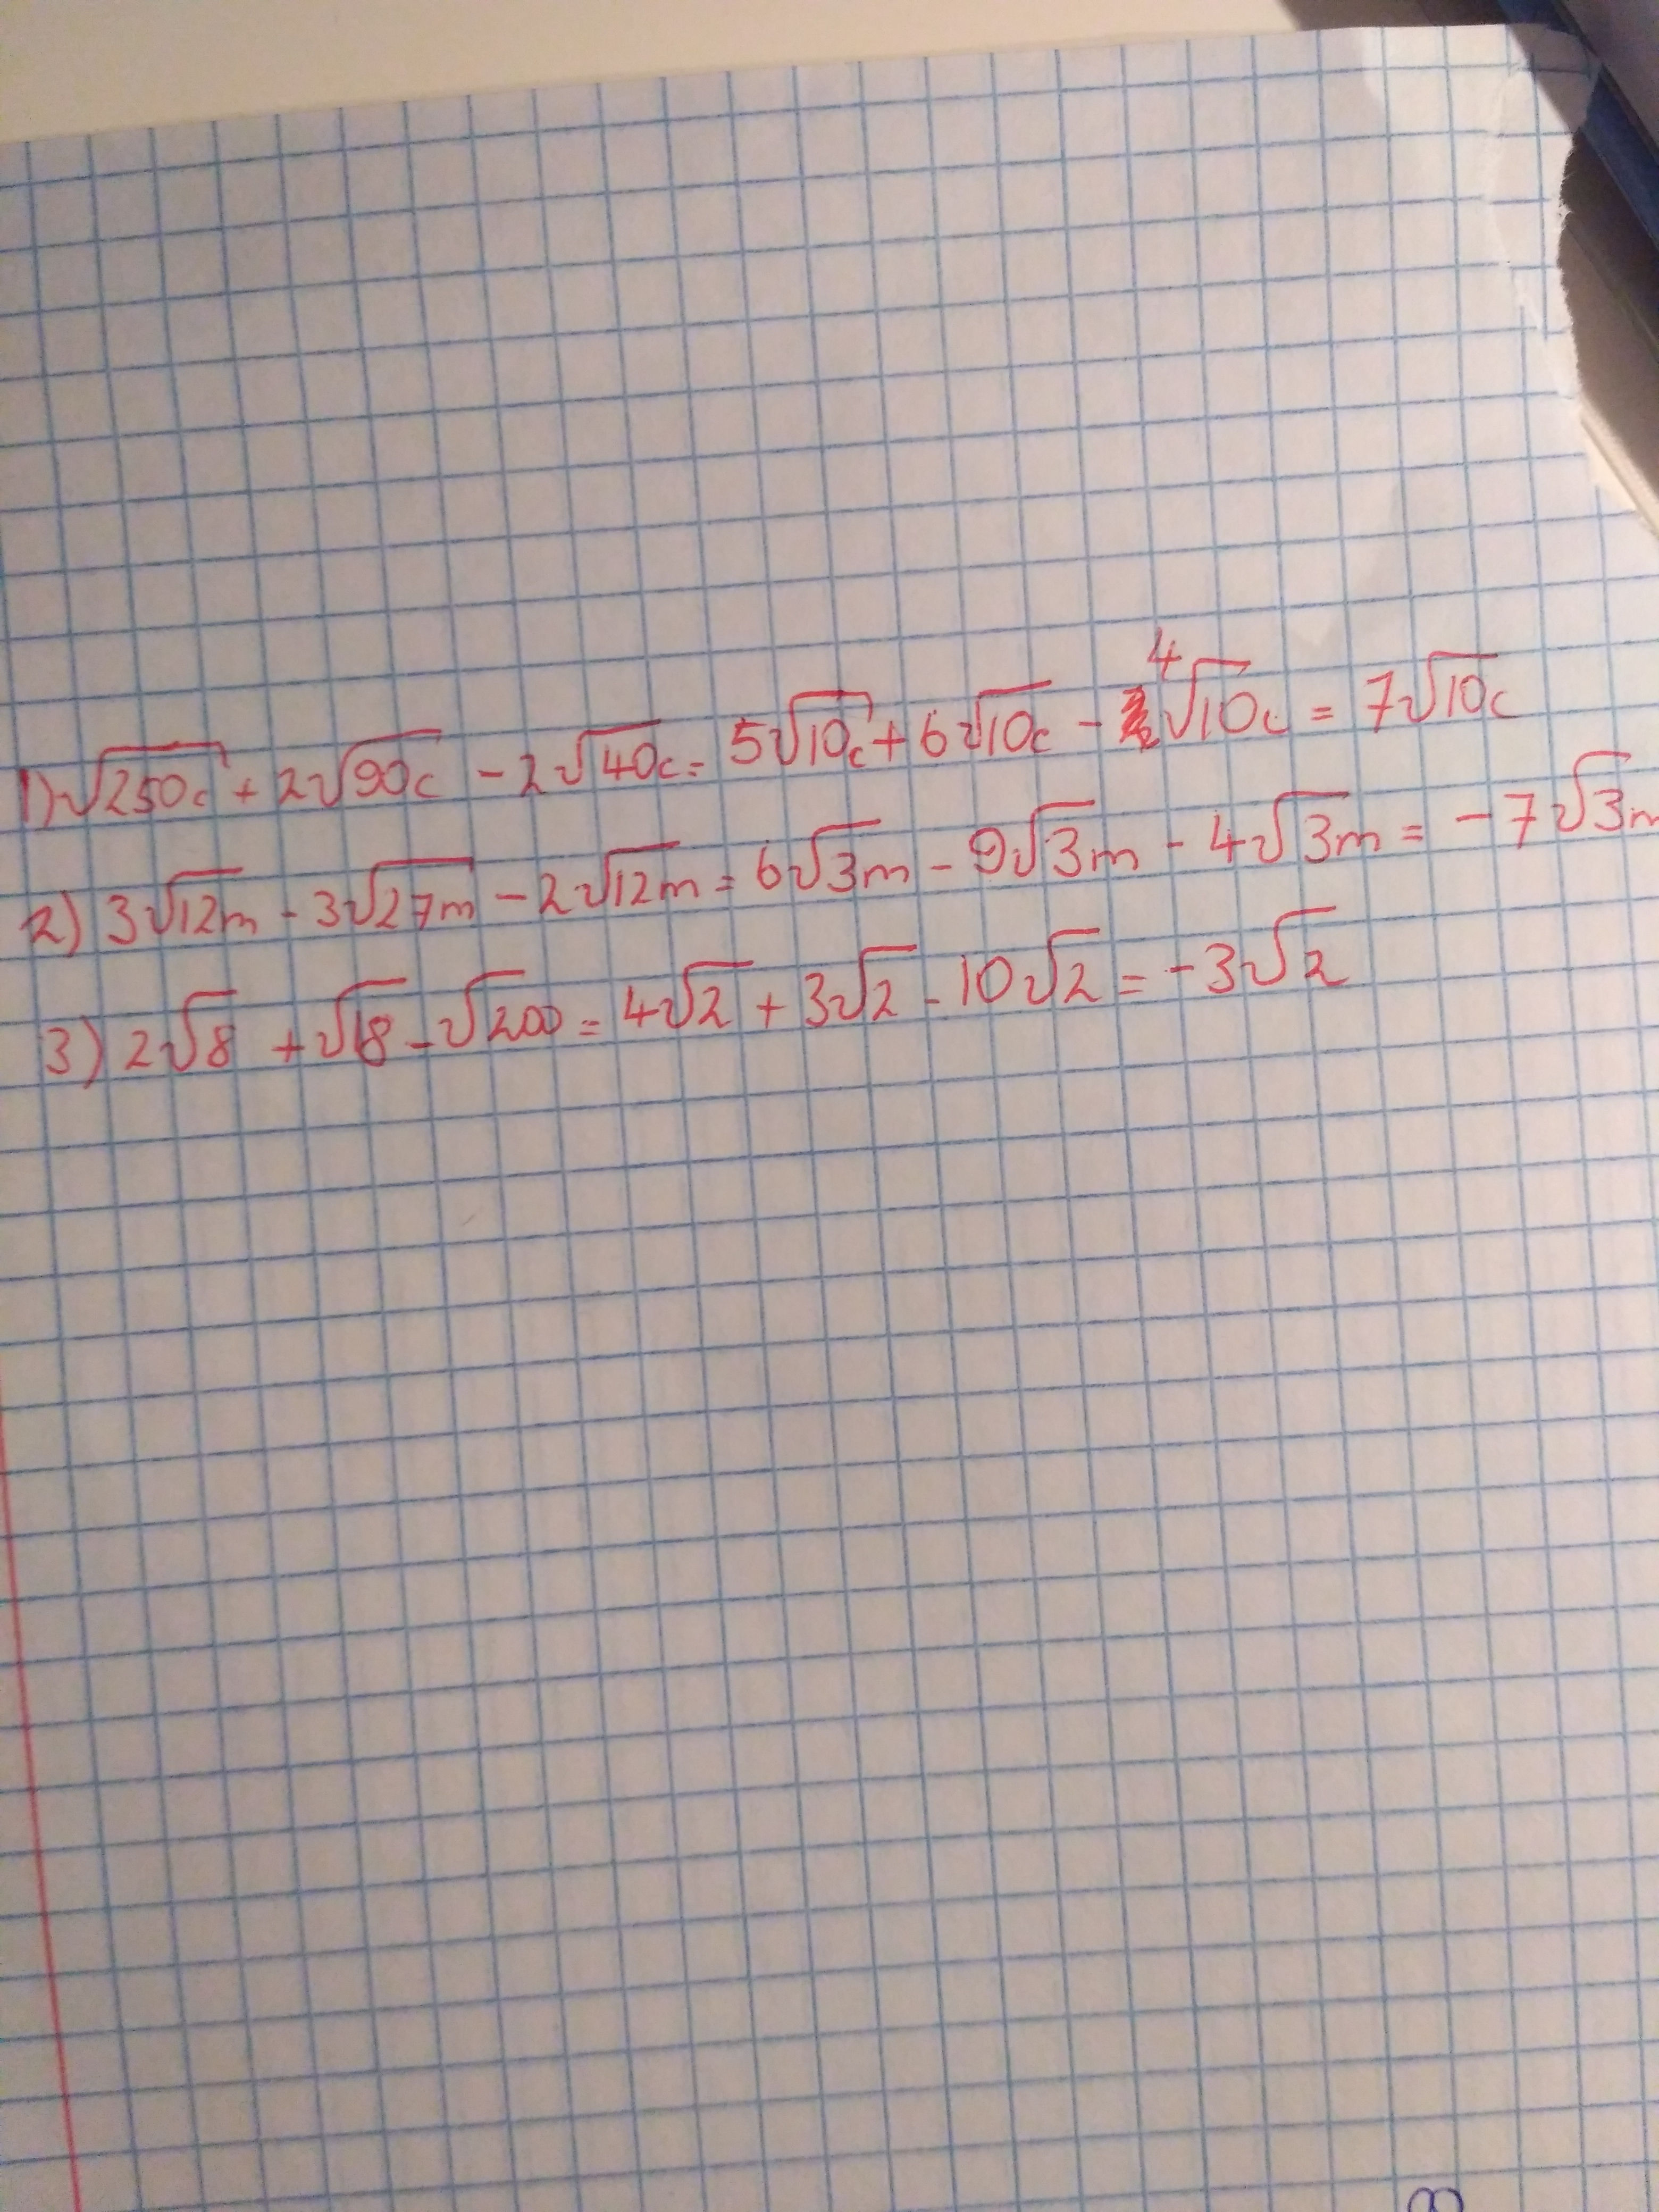 1) √250c + 2√90c - 2√40c = 5√10c + 6√10c - 4√10c = 7√10c
2) 3√12m - 3√27m - 2√12m = 6√3m - 9√3m - 4√3m = -7√3m
3) 2√8 + √18 - √200 = 4√2 + 3√2 - 10√2 = -3√2